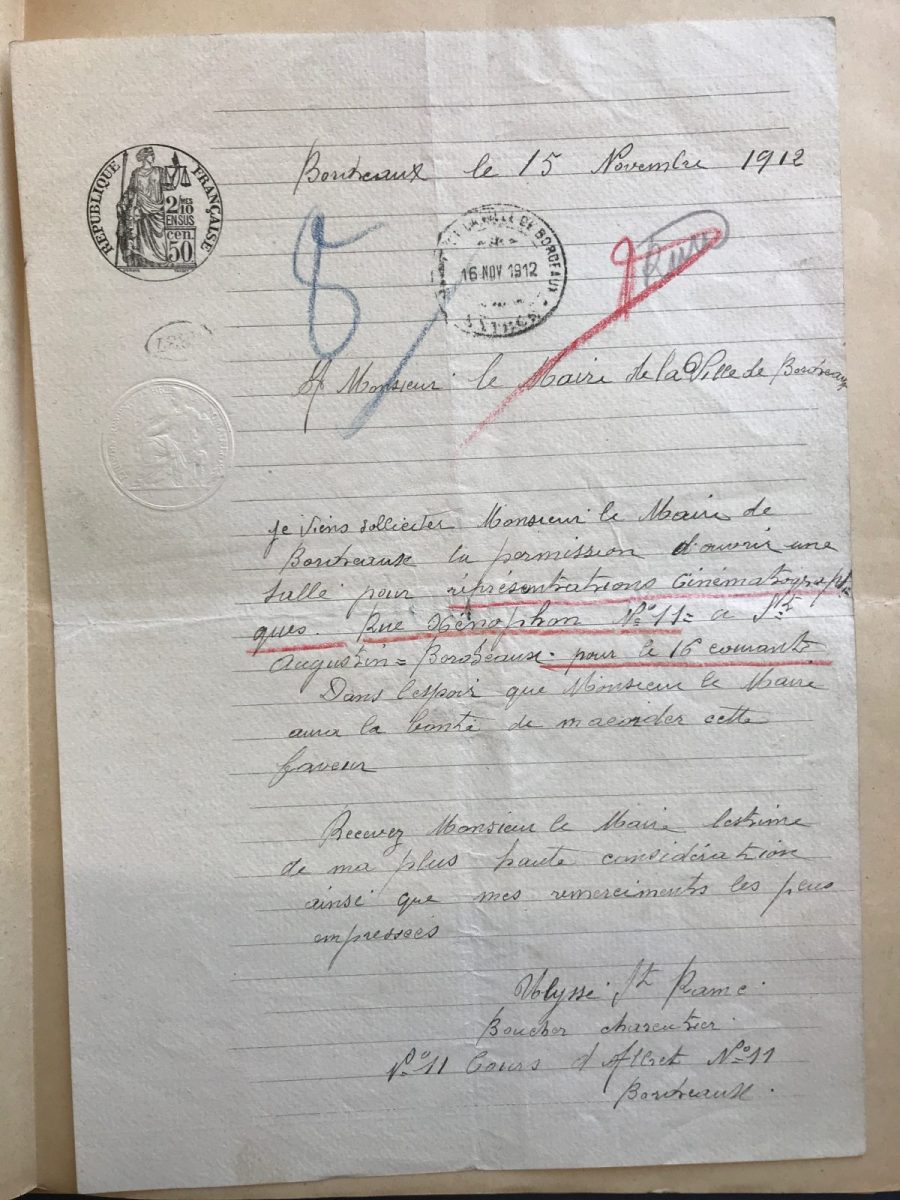 RÉPUBLIQUE FRANÇAISE
2/10 MES
EN SUS
cen
50
Bordeaux le 15 Novembre 1912
LA VILLE DE BORDEAUX
16 NOV 1912
8
A Monsieur le Maire de la Ville de Bordeaux
je viens solliciter Monsieur le Maire de
Bordeaux la permission d'ouvrir une
salle pour réprésentrations Cinématograph=
ques. Rue Xénophon N° 11= a St
Augustin= Bordeaux. pour le 16 courante
Dans l'espoir que Monsieur le Maire
aura la bonté de macorder cette
faveur
Recevez Monsieur le Maire lestime
de ma plus haute considération
ainsi que mes remerciments les plus
empressées
Ulysse St Ramé.
Boucher charcutier.
N° 11 Cours d'Albret N° 11
Bordeaux.